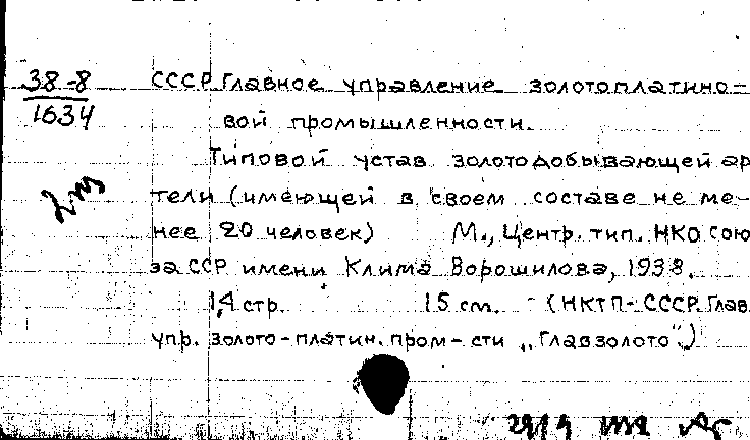 38-8
1634
СССР Главное управление золотоплатино-
вой промышленности.
Типовой устав золотодобывающей ар
тели (имеющей в своем составе не ме-
нее 20 человек) М., Центр. тип. НКО Сою
за ССР имени Клима Ворошилова, 1938.
14 стр. 15 см. (НКТП-СССР. Глав
упр. золото-платин. пром-сти „Главзолото".)